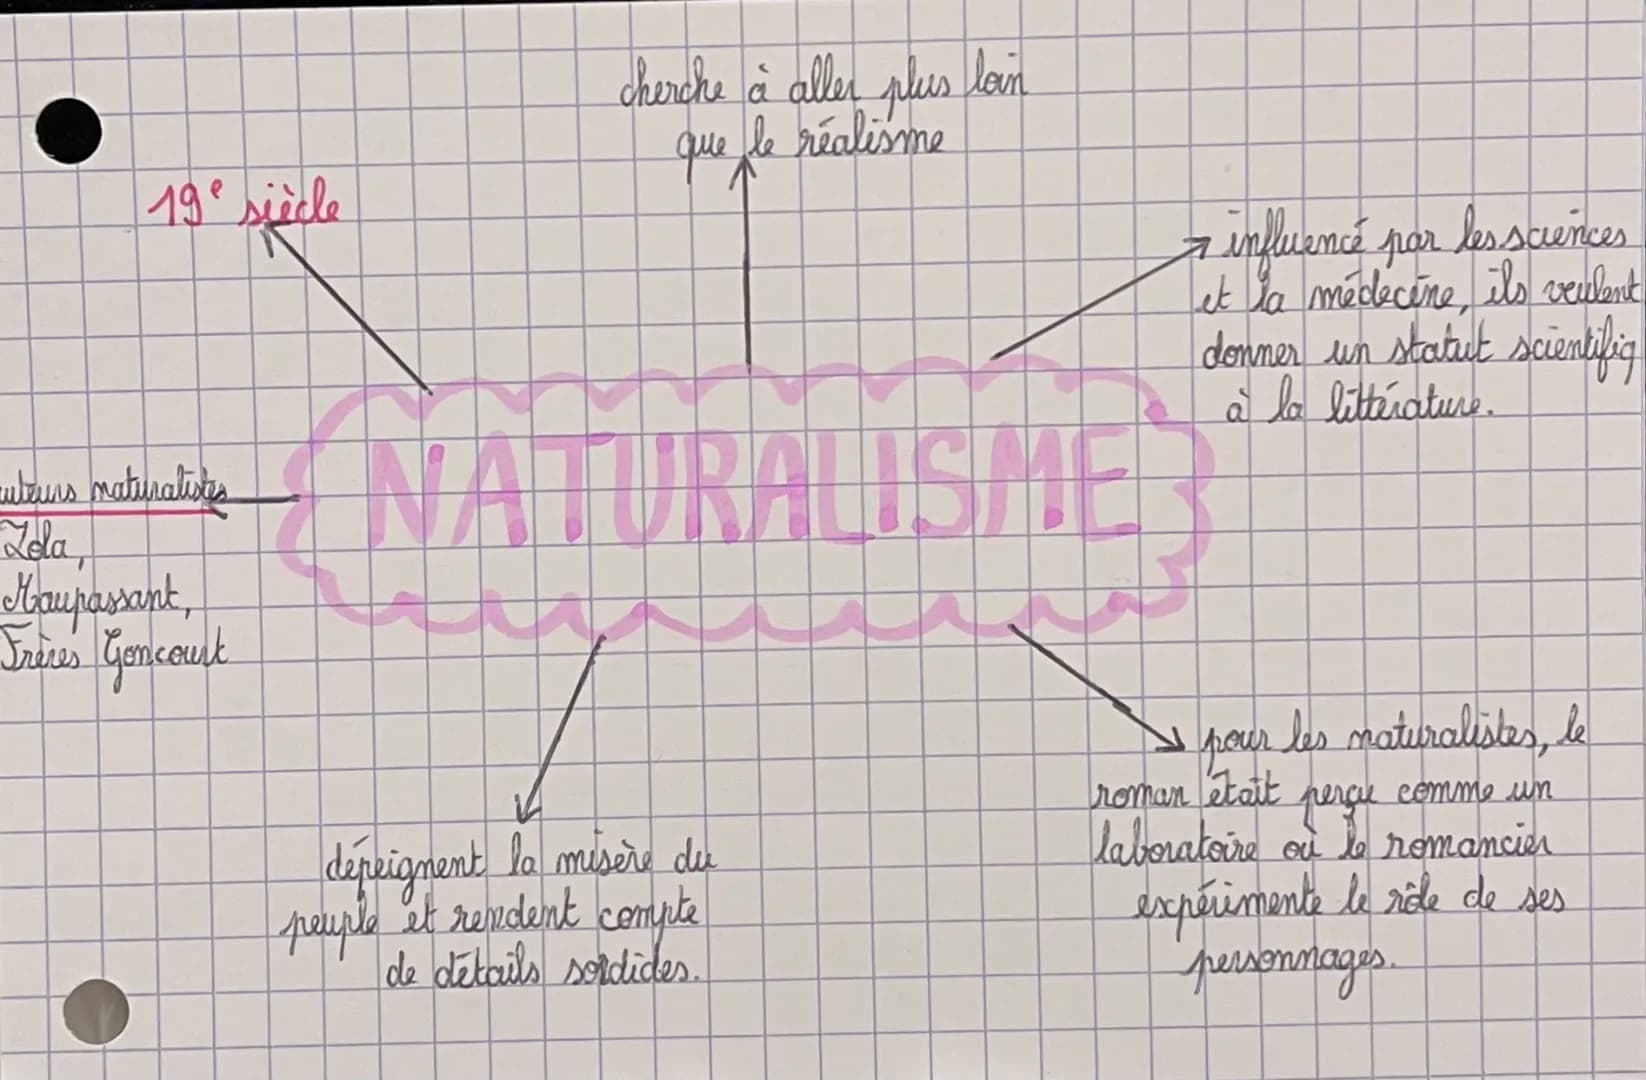 cherche à aller plus loin
que le réalisme
19e siècle
influencé par les sciences
et la médecine, ils veulent
donner un statut scientifiq
à la littérature.
NATURALISME
uteurs naturalistes
Zola,
Maupassant,
Frères Goncourt
pour les naturalistes, le
roman était perçu comme un
laboratoire où le romancier
expérimente le rôle de ses
personnages.
dépeignent la misère du
peuple et rendent compte
de détails sordides.